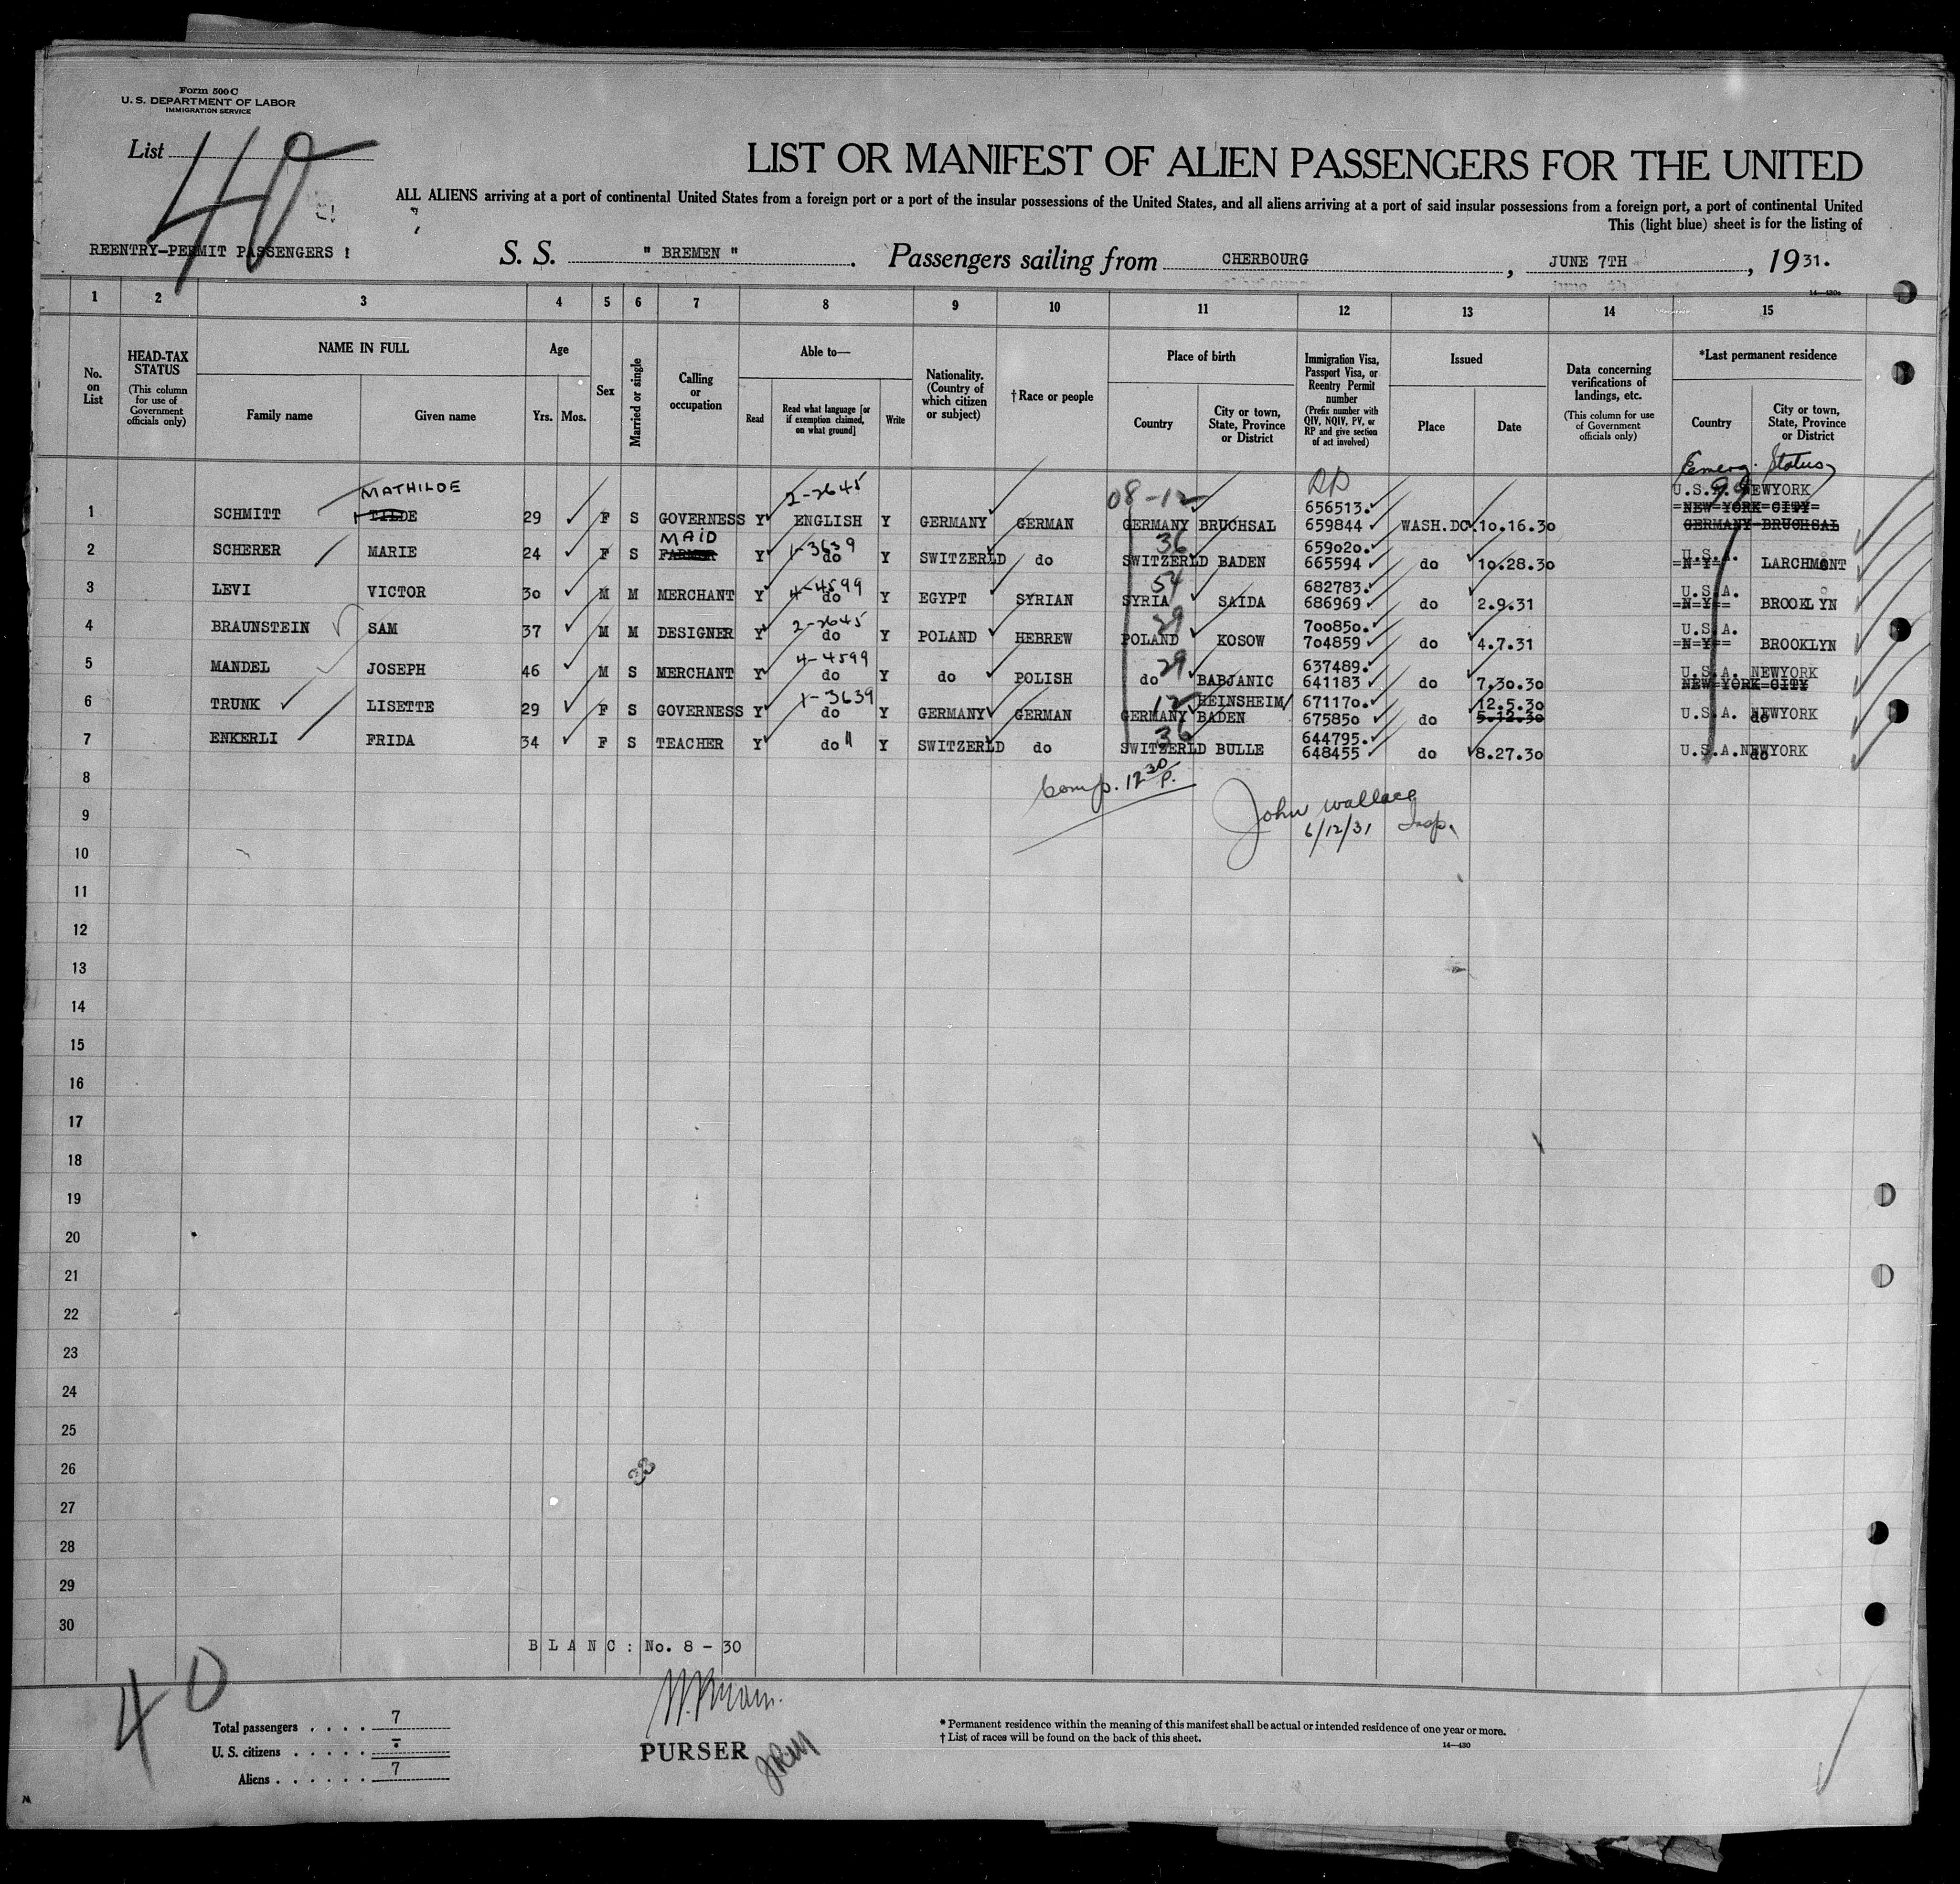 Form 500 C
U. S. DEPARTMENT OF LABOR
IMMIGRATION SERVICE
List 40
LIST OR MANIFEST OF ALIEN PASSENGERS FOR THE UNITED
ALL ALIENS arriving at a port of continental United States from a foreign port or a port of the insular possessions of the United States, and all aliens arriving at a port of said insular possessions from a foreign port, a port of continental United
This (light blue) sheet is for the listing of
REENTRY-PERMIT PASSENGERS !
S. S. " BREMEN ". Passengers sailing from CHERBOURG, JUNE 7TH, 1931.
14—430a
1 2 3 4 5 6 7 8 9 10 11 12 13 14 15
No. on List
HEAD-TAX STATUS (This column for use of Government officials only)
NAME IN FULL
Family name Given name
Age
Yrs. Mos.
Sex
Married or single
Calling or occupation
Able to—
Read Read what language [or if exemption claimed, on what ground] Write
Nationality. (Country of which citizen or subject)
† Race or people
Place of birth
Country City or town, State, Province or District
Immigration Visa, Passport Visa, or Reentry Permit number (Prefix number with QIV, NQIV, PV, or RP and give section of act involved)
Issued
Place Date
Data concerning verifications of landings, etc. (This column for use of Government officials only)
*Last permanent residence
Country City or town, State, Province or District
Status
MATHILDE 2-2645 08-12 RP 656513. U.S.A. NEWYORK
NEW YORK CITY
1 SCHMITT TILDE 29 F S GOVERNESS Y ENGLISH Y GERMANY GERMAN GERMANY BRUCHSAL 659844 WASH.DC. 10.16.30 GERMANY BRUCHSAL
MAID 1-3639 36 659020. U.S.A.
2 SCHERER MARIE 24 F S FARMER Y do Y SWITZERLD do SWITZERLD BADEN 665594 do 10.28.30 N-Y LARCHMONT
4-4599 54 682783. U.S.A.
3 LEVI VICTOR 30 M M MERCHANT Y do Y EGYPT SYRIAN SYRIA SAIDA 686969 do 2.9.31 N-Y BROOKLYN
2-2645 29 700850. U.S.A.
4 BRAUNSTEIN SAM 37 M M DESIGNER Y do Y POLAND HEBREW POLAND KOSOW 704859 do 4.7.31 N-Y BROOKLYN
4-4599 29 637489. U.S.A. NEWYORK
5 MANDEL JOSEPH 46 M S MERCHANT Y do Y do POLISH do BABJANIC 641183 do 7.30.30 NEW YORK CITY
1-3639 12 HEINSHEIM/ 671170. 12.5.30
6 TRUNK LISETTE 29 F S GOVERNESS Y do Y GERMANY GERMAN GERMANY BADEN 675850 do 5.12.30 U.S.A. NEWYORK do
36 644795.
7 ENKERLI FRIDA 34 F S TEACHER Y do " Y SWITZERLD do SWITZERLD BULLE 648455 do 8.27.30 U.S.A. NEWYORK do
8
Comp. 12 30 P.
John Wallace
9
6/12/31 Insp.
10
11
12
13
14
15
16
17
18
19
20
21
22
23
24
25
26
27
28
29
30
B L A N C : No. 8 - 30
40
Total passengers . . . . 7
U. S. citizens . . . . .
Aliens . . . . . . 7
PURSER
* Permanent residence within the meaning of this manifest shall be actual or intended residence of one year or more.
† List of races will be found on the back of this sheet.
14—430